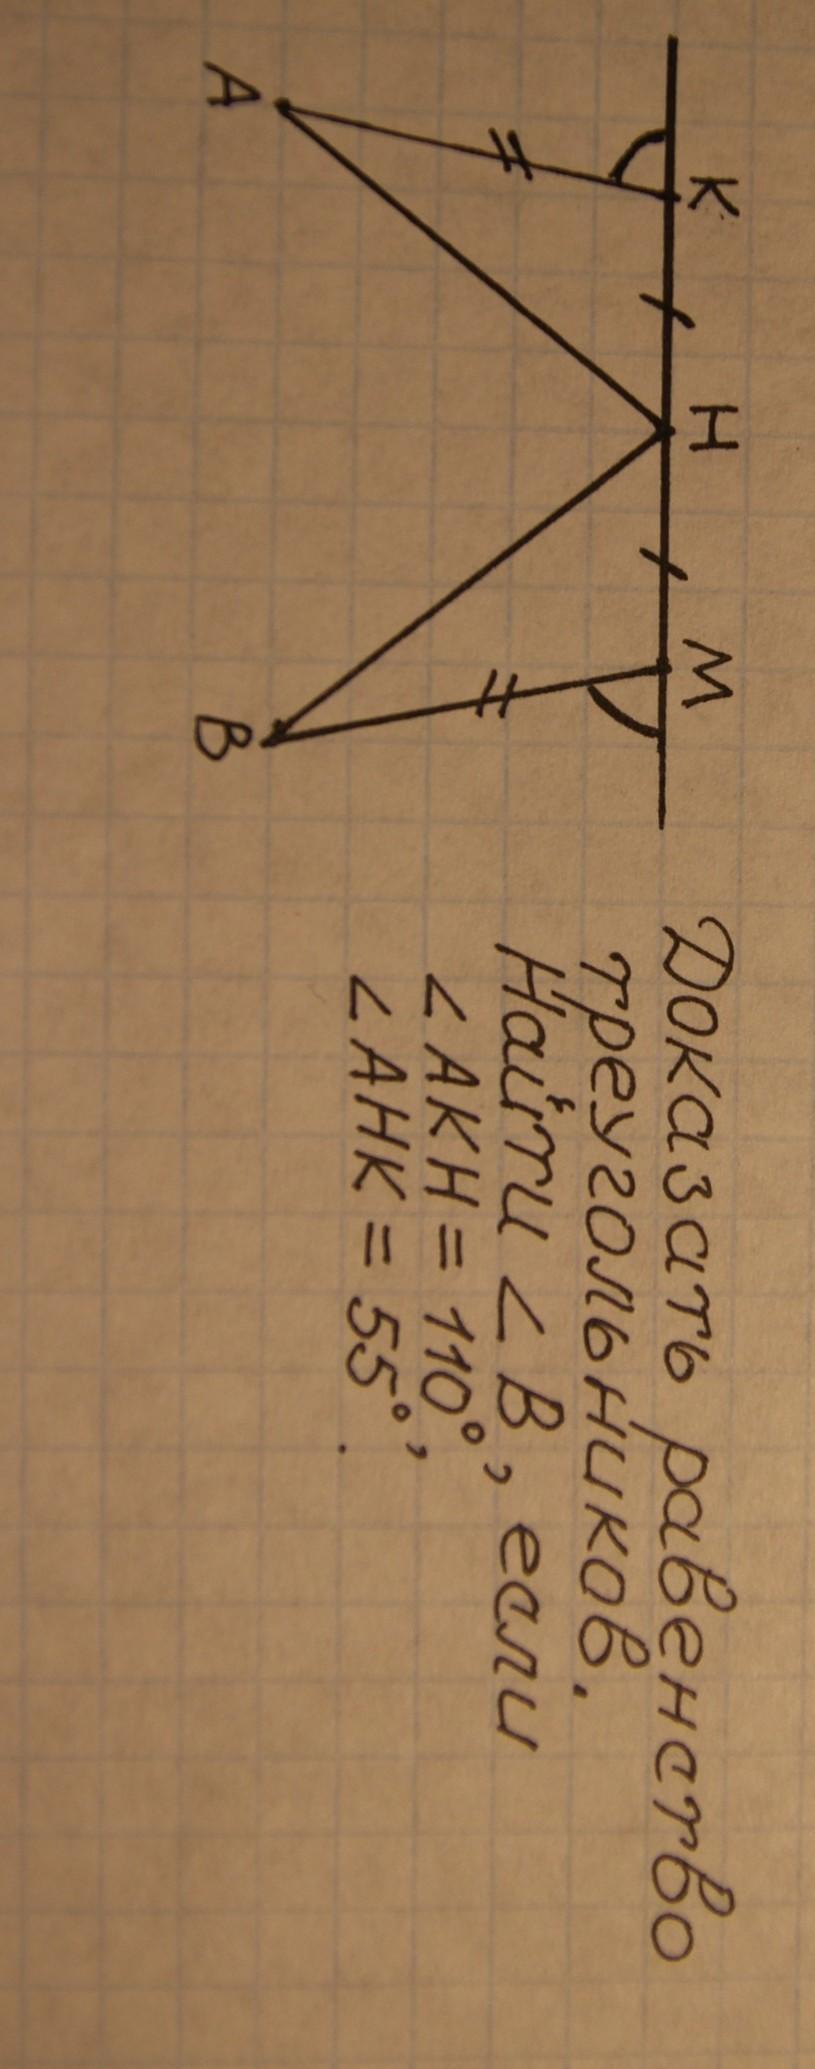 K H M
A B
Доказать равенство
треугольников.
Найти < B, если
< AKH = 110°,
< AHK = 55°.